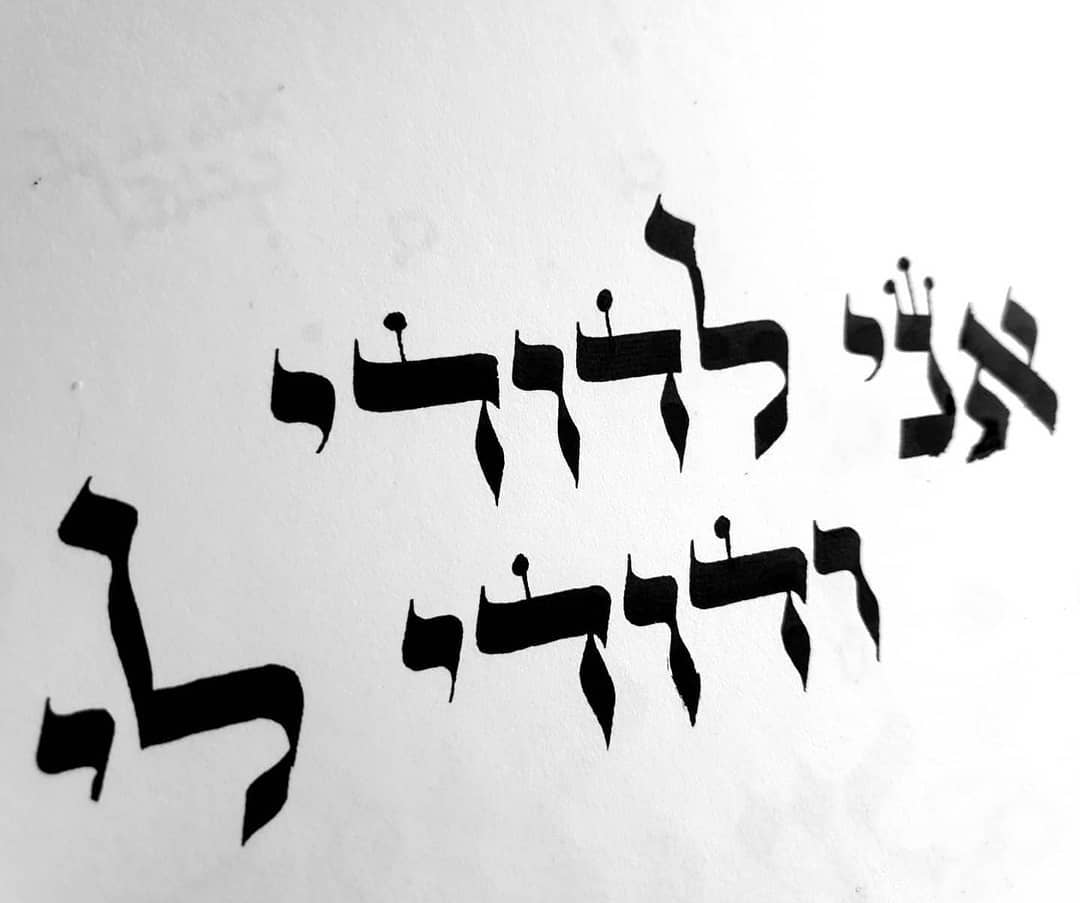 אני לדודי
ודודי לי